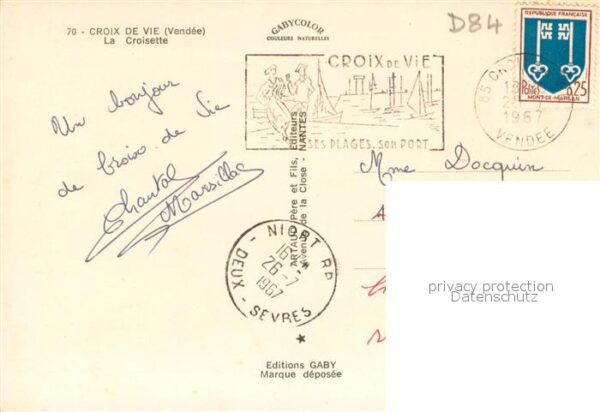 70 - CROIX DE VIE (Vendée)
La Croisette
GABYCOLOR
COULEURS NATURELLES
D84
REPUBLIQUE FRANÇAISE
Postes 0,25
MONT-DE-MARSAN
CROIX DE VIE
SES PLAGES, SON PORT
1967
VENDEE
Un bonjour
de Croix de Vie
Chantal
Mme Docquin
ARTAUD Père et Fils, Editeurs
Avenue de la Close - NANTES
NIORT RP
16H
26-7
1967
DEUX - SEVRES
Editions GABY
Marque déposée
privacy protection
Datenschutz